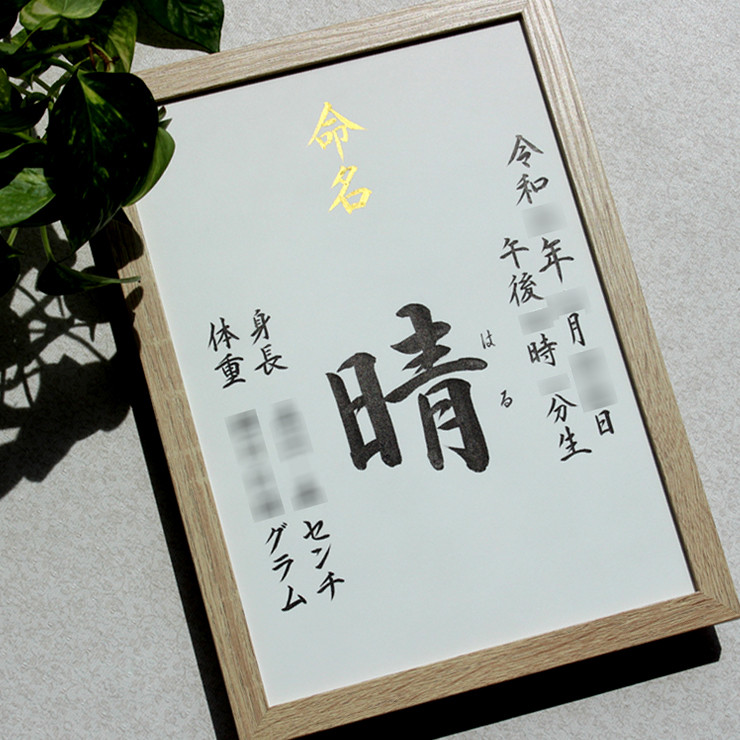 命名
令和 年 月 日
午後 時 分生
晴
はる
身長 センチ
体重 グラム